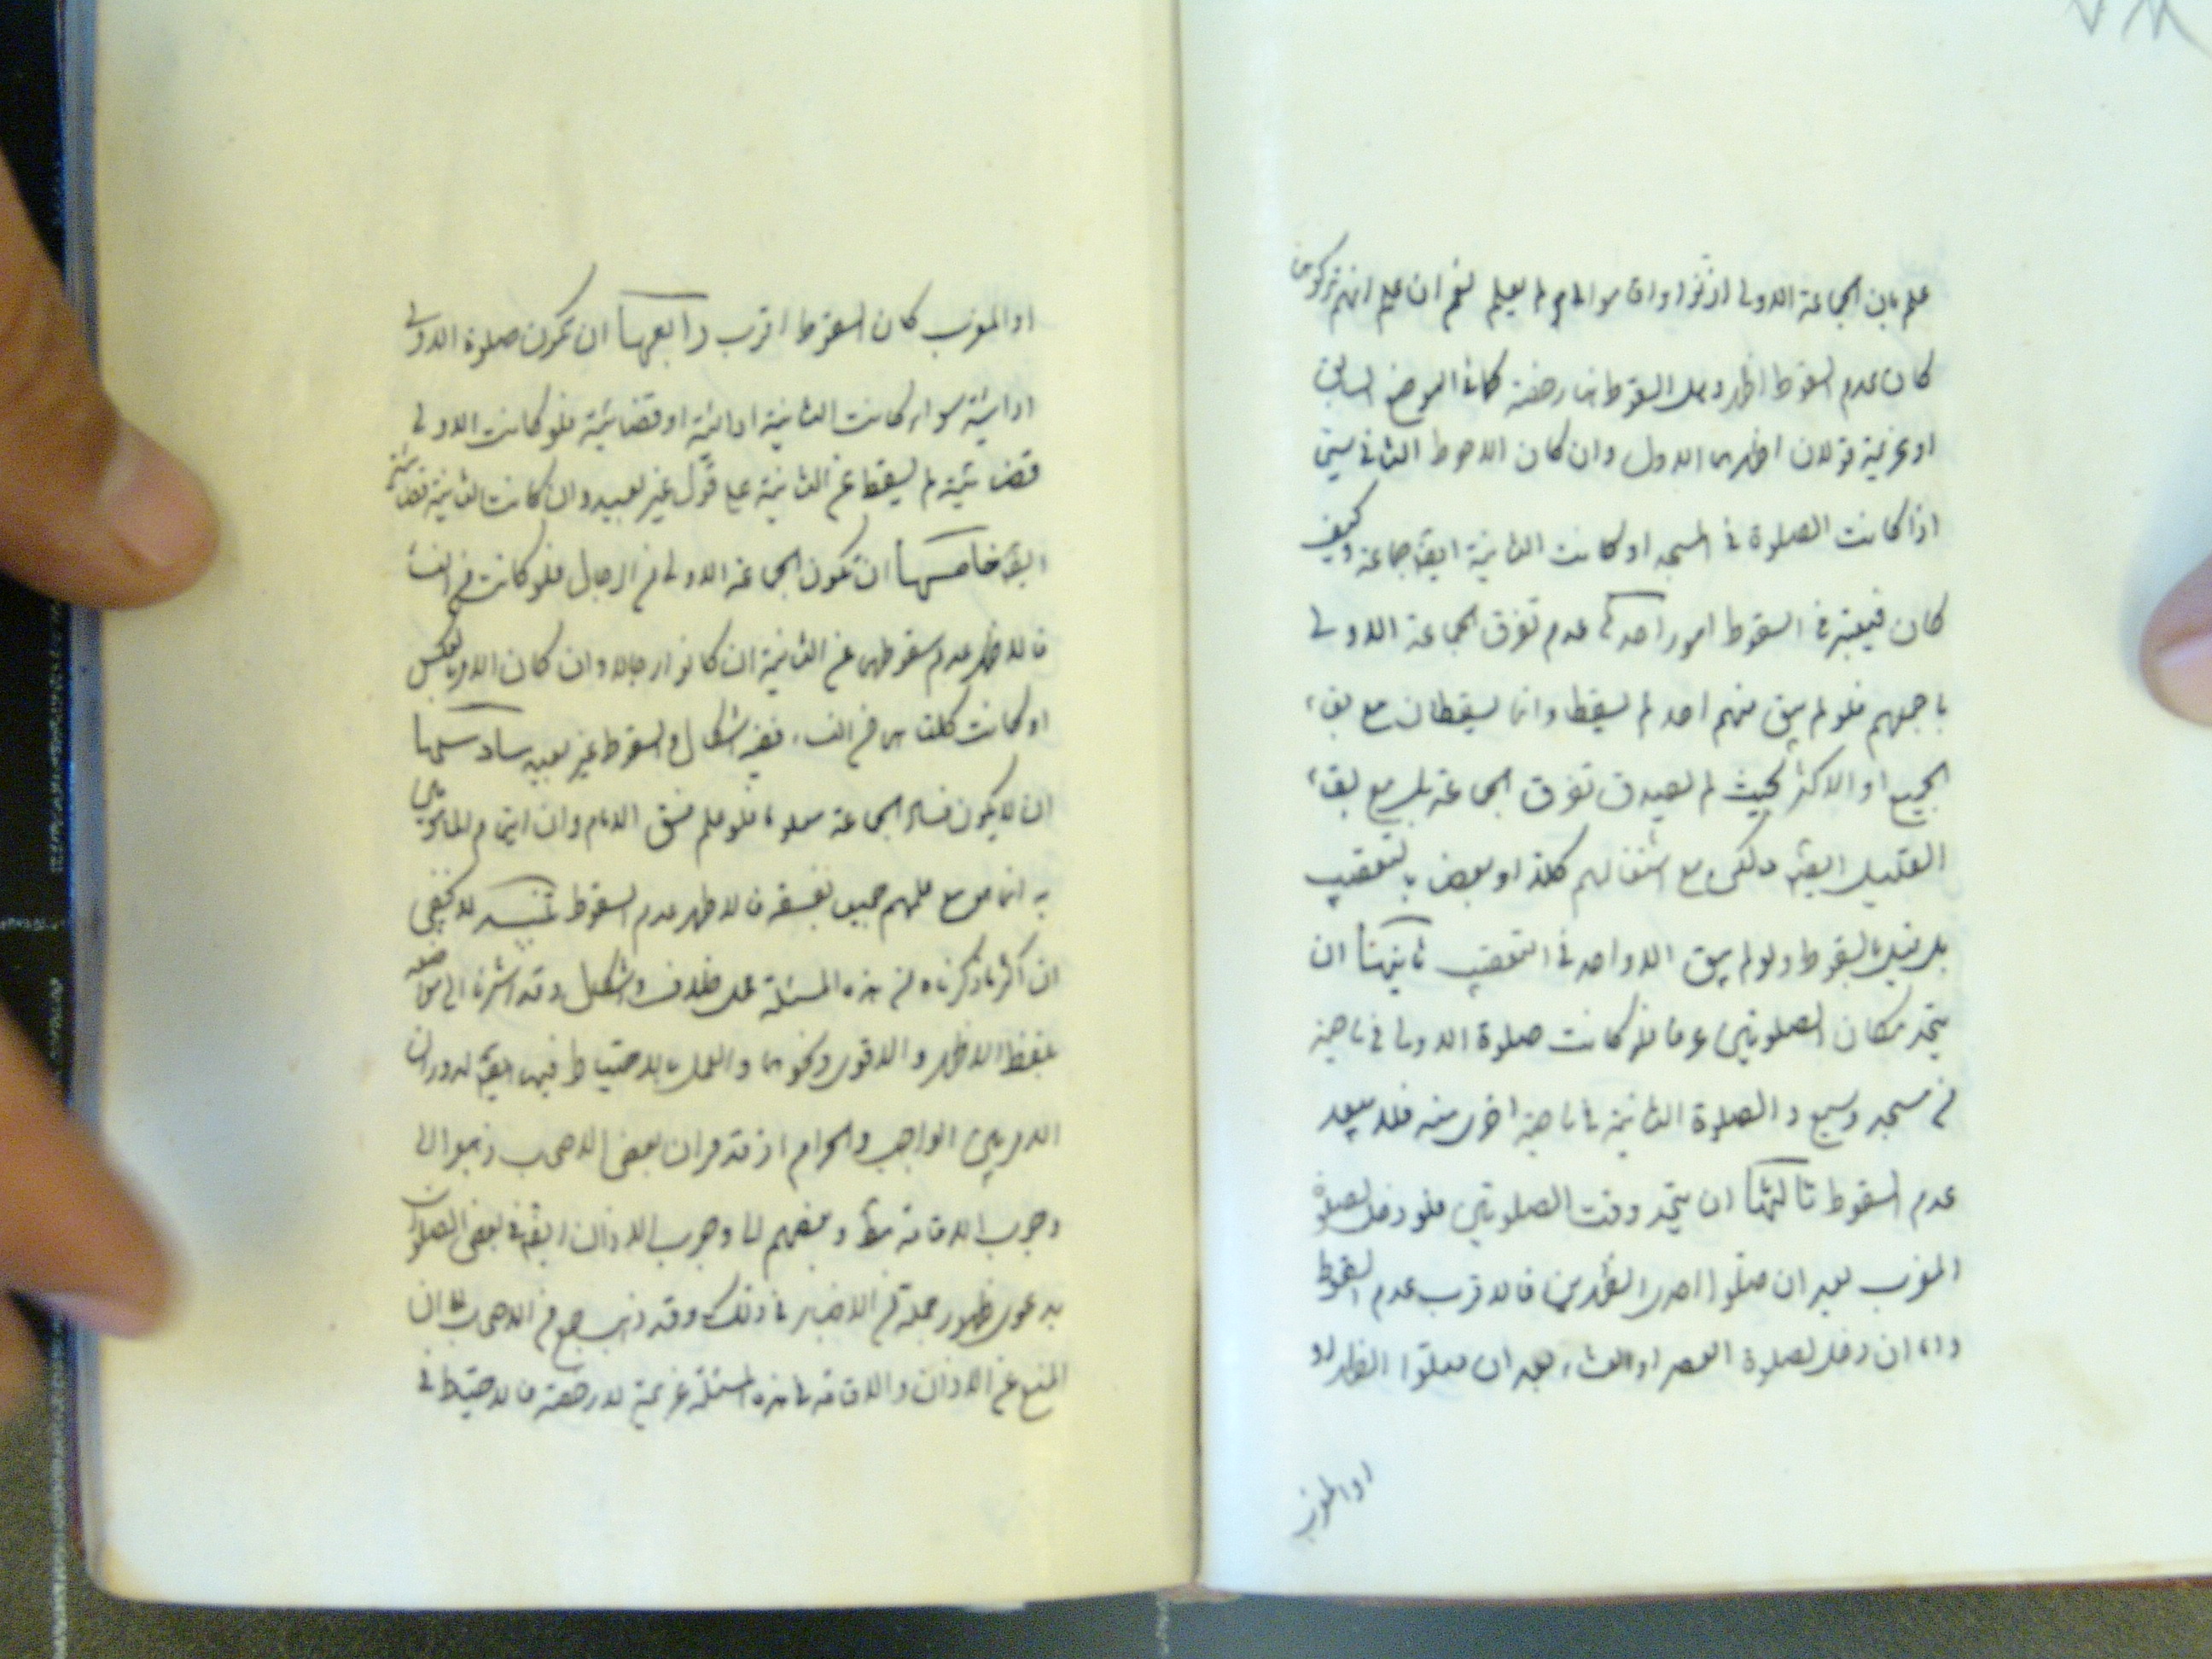 علم بان الجماعة الاولى اذنوا واقاموا ام لم يعلم نعم ان علم انهم تركوهما
كان عدم السقوط اظهر وهل السقوط هنا رخصة كما في الموضع السابق
او عزيمة قولان اظهرهما الاول وان كان الاحوط الثاني سيما
اذا كانت الصلوة في المسجد او كانت الثانية ايضا جماعة وكيف
كان فيعتبر في السقوط امور احدها عدم تفرق الجماعة الاولى
باجمعهم فلو لم يبق منهم احد لم يسقطا وانما يسقطان مع بقاء
الجميع او الاكثر بحيث لم يصدق تفرق الجماعة بل مع بقاء
القليل ايضا ولكن مع اشتغالهم كلا او بعضا بالتعقيب
بل قيل بالسقوط ولو لم يبق الا واحد في التعقيب ثانيها ان
يتحد مكان الصلوتين عرفا فلو كانت صلوة الاولى في ناحية
من مسجد وسيع والصلوة الثانية في ناحية اخرى منه فلا يبعد
عدم السقوط ثالثها ان يتحد وقت الصلوتين فلو دخل لصلوة
المغرب بعد ان صلوا احدى الظهرين فالاقرب عدم السقوط
واما ان دخل لصلوة العصر او العشاء بعد ان صلوا الظهر
او المغرب
او المغرب كان السقوط اقرب رابعها ان تكون صلوة الاولى
ادائية سواء كانت الثانية ادائية او قضائية فلو كانت الاولى
قضائية لم يسقطا عن الثانية على قول غير بعيد وان كانت الثانية قضائية
ايضا خامسها ان تكون الجماعة الاولى من الرجال فلو كانت من النساء
فالاظهر عدم سقوطهما عن الثانية ان كانوا رجالا وان كان الامر بالعكس
او كانت كلتاهما من النساء ففيه اشكال والسقوط غير بعيد سادسها
ان لا يكون فساد الجماعة معلوما فلو علم فسق الامام وان ايتمام المامومين
به انما هو مع علمهم جميعا بفسقه فالاظهر عدم السقوط تنبيه لا يخفى
ان اكثر ما ذكرناه من هذه المسئلة محل خلاف واشكال وقد اشرنا الى
بلفظ الاظهر والاقوى ونحوهما والعمل بالاحتياط فيها ايضا لدوران
الامر بين الواجب والحرام اذ قد مر ان بعض الاصحاب ذهبوا الى
وجوب الاقامة مطلقا وبعضهم الى وجوب الاذان ايضا في بعض الصلوات
بدعوى ظهور جملة من الاخبار في ذلك وقد ذهب جمع من الاصحاب الى ان
المنع عن الاذان والاقامة في هذه المسئلة عزيمة لا رخصة فالاحتياط في